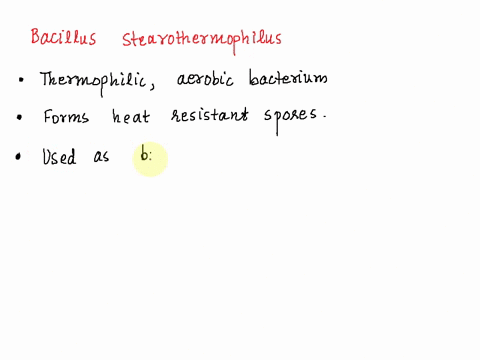 Bacillus stearothermophilus
• Thermophilic, aerobic bacterium
• Forms heat resistant spores.
• Used as b